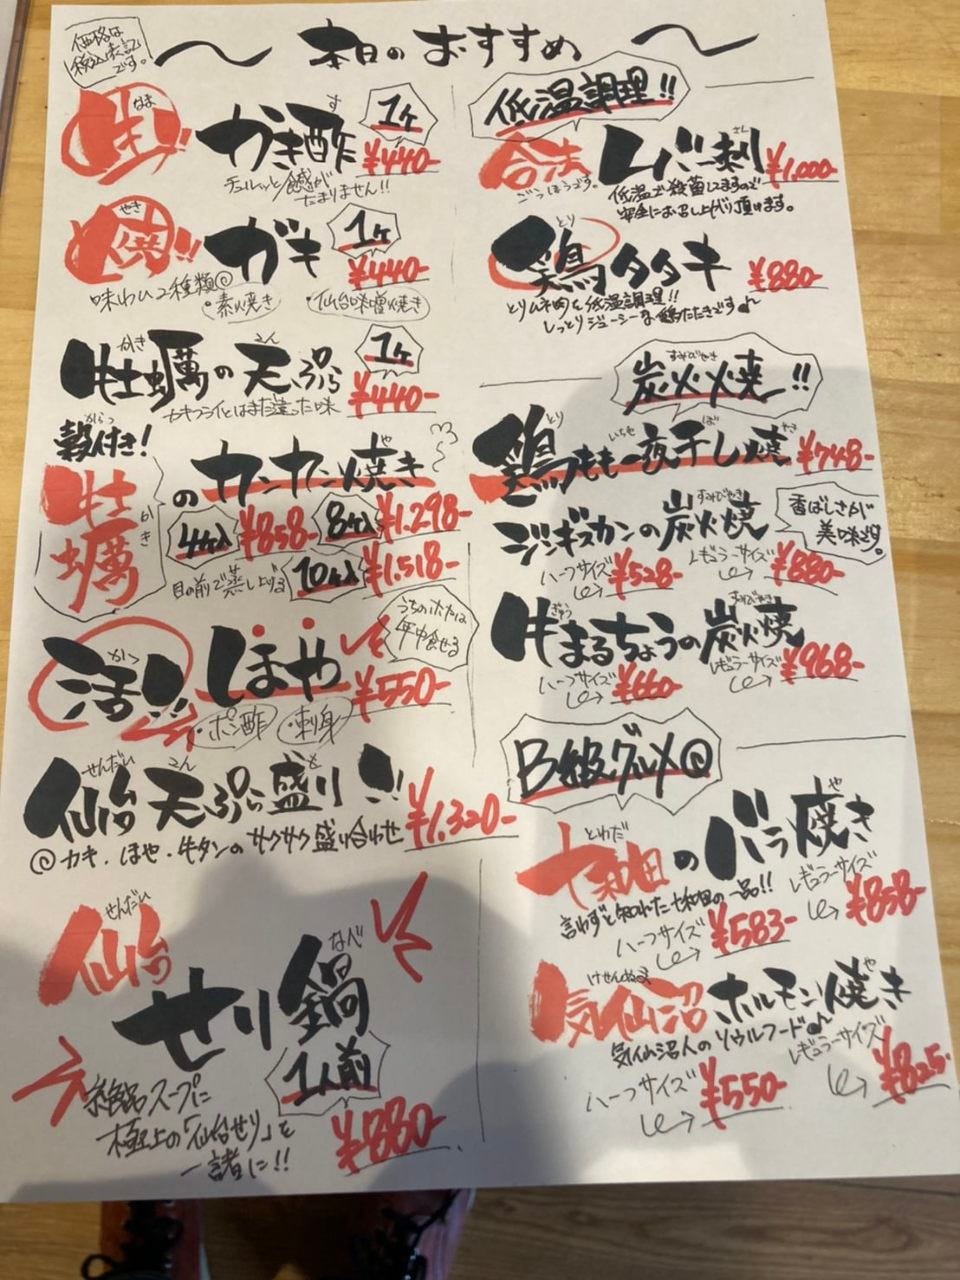 価格は
税込表記
です。
本日のおすすめ
なま
生!!
がき酢
す
1ヶ
¥440-
チュルッと感が
たまりません!!
やき
焼!!
ガキ
1ヶ
¥440-
味わい2種類
・素焼き
・仙台味噌焼き
かき
てん
牡蠣の天ぷら
1ヶ
¥440-
カキフライとはまた違った味
からつ
殻付き!
牡蠣
かき
のカンカン焼き
や
4ヶ入
¥858-
8ヶ入
¥1.298-
目の前で蒸し上げる
10ヶ入
¥1.518-
うちのホヤは
年中食せる
かつ
活!!
ほや
¥550-
・ポン酢
・刺身
せんだい
てん
も
仙台天ぷら盛り!!
¥1,320-
カキ・ほや・牛タンのサクサク盛り合わせ
せんだい
仙台
なべ
せり鍋
1人前
¥880-
スープに
極上の「仙台せり」を
一諸に!!
低温調理!!
合法
ごうほうです。
レバー刺
さし
¥1.000-
低温で殺菌してますので
安全にお召し上がり頂けます。
とり
鶏タタキ
¥880-
とりムネ肉を低温調理!!
しっとりジューシーな鶏たたきです
すみびやき
炭火焼!!
とり
いちや
ぼ
やき
鶏もも一夜干し焼
¥748-
すみびやき
ジンギスカンの炭火焼
香ばしさが
美味です。
ハーフサイズ
¥528-
レギュラーサイズ
¥880-
ぎゅう
すみびやき
牛まるちょうの炭火焼
ハーフサイズ
¥660-
レギュラーサイズ
¥968-
B級グルメ
とわだ
や
十和田のバラ焼き
言わずと知れた十和田の一品!!
ハーフサイズ
¥583-
レギュラーサイズ
¥858-
けせんぬま
や
気仙沼ホルモン焼き
気仙沼人のソウルフード
ハーフサイズ
¥550-
レギュラーサイズ
¥825-